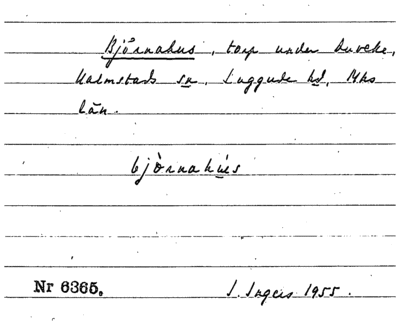 Björnahus, torp under Duveke,
Halmstads sn, Luggude hd, Mhs
län.
bjö̀rnahú́s
Nr 6365. I. Ingers 1955.